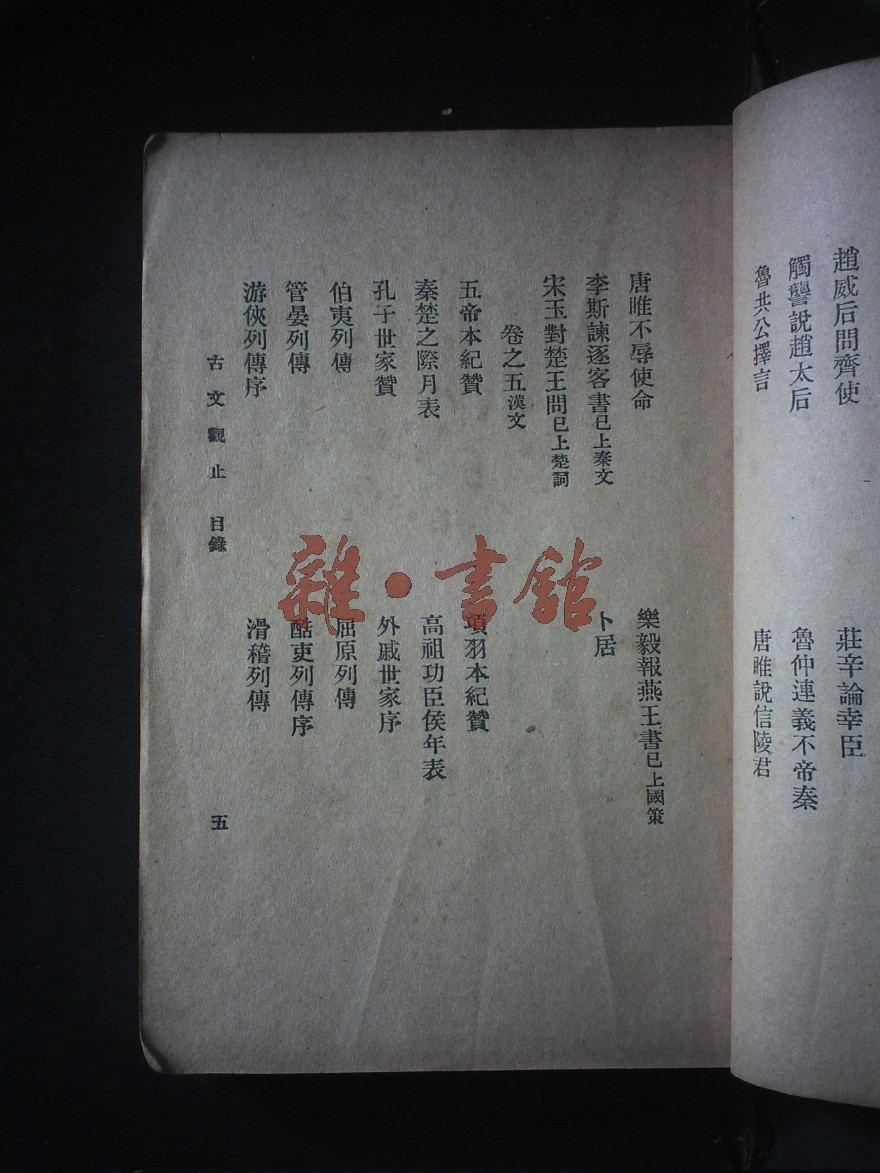 趙威后問齊使
莊辛論幸臣
觸讋說趙太后
魯仲連義不帝秦
魯共公擇言
唐雎說信陵君
唐雎不辱使命
樂毅報燕王書已上國策
李斯諫逐客書已上秦文
卜居
宋玉對楚王問已上楚詞
卷之五漢文
五帝本紀贊
項羽本紀贊
秦楚之際月表
高祖功臣侯年表
孔子世家贊
外戚世家序
伯夷列傳
屈原列傳
管晏列傳
酷吏列傳序
游俠列傳序
滑稽列傳
古文觀止 目錄
五
雜·書館